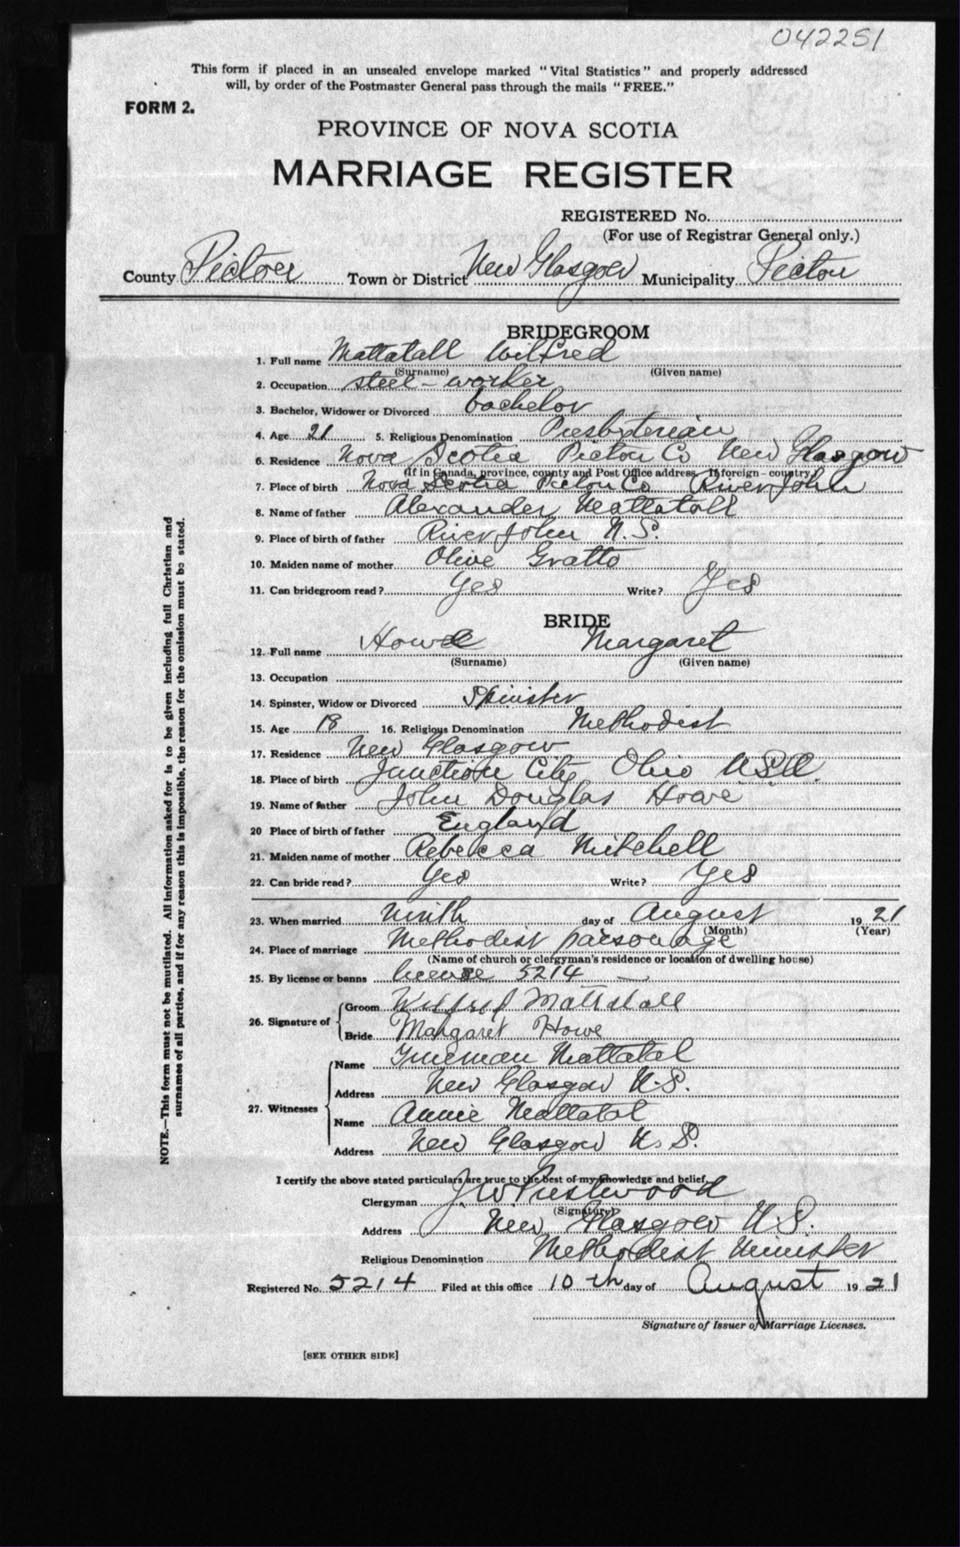 042251
This form if placed in an unsealed envelope marked "Vital Statistics" and properly addressed
will, by order of the Postmaster General pass through the mails "FREE."
FORM 2.
PROVINCE OF NOVA SCOTIA
MARRIAGE REGISTER
REGISTERED No.
(For use of Registrar General only.)
County Pictou Town or District New Glasgow Municipality Pictou
BRIDEGROOM
1. Full name Mattatall Wilfred
(Surname) (Given name)
2. Occupation steel-worker
3. Bachelor, Widower or Divorced bachelor
4. Age 21 5. Religious Denomination Presbyterian
6. Residence Nova Scotia Pictou Co New Glasgow
(If in Canada, province, county and Post Office address. If foreign - country)
7. Place of birth Nova Scotia Pictou Co River John
8. Name of father Alexander Mattatall
9. Place of birth of father River John N.S.
10. Maiden name of mother Olive Gratto
11. Can bridegroom read? Yes Write? Yes
BRIDE
12. Full name Howe Margaret
(Surname) (Given name)
13. Occupation
14. Spinster, Widow or Divorced Spinster
15. Age 18 16. Religious Denomination Methodist
17. Residence New Glasgow
18. Place of birth Junction City, Ohio U.S.A.
19. Name of father John Douglas Howe
20 Place of birth of father England
21. Maiden name of mother Rebecca Mitchell
22. Can bride read? Yes Write? Yes
23. When married Ninth day of August 1921
(Month) (Year)
24. Place of marriage Methodist parsonage
(Name of church or clergyman's residence or location of dwelling house)
25. By license or banns license 5214 —
26. Signature of
Groom Wilfred Mattatall
Bride Margaret Howe
27. Witnesses
Name Mattatal
Address New Glasgow N.S.
Name Annie Mattatal
Address New Glasgow N.S.
I certify the above stated particulars are true to the best of my knowledge and belief,
Clergyman J W Prestwood
(Signature)
Address New Glasgow N.S.
Religious Denomination Methodist Minister
Registered No. 5214 Filed at this office 10th day of August 1921
Signature of Issuer of Marriage Licenses.
[SEE OTHER SIDE]
NOTE.—This form must not be mutilated. All information asked for is to be given including full Christian and
surnames of all parties, and if for any reason this is impossible, the reason for the omission must be stated.